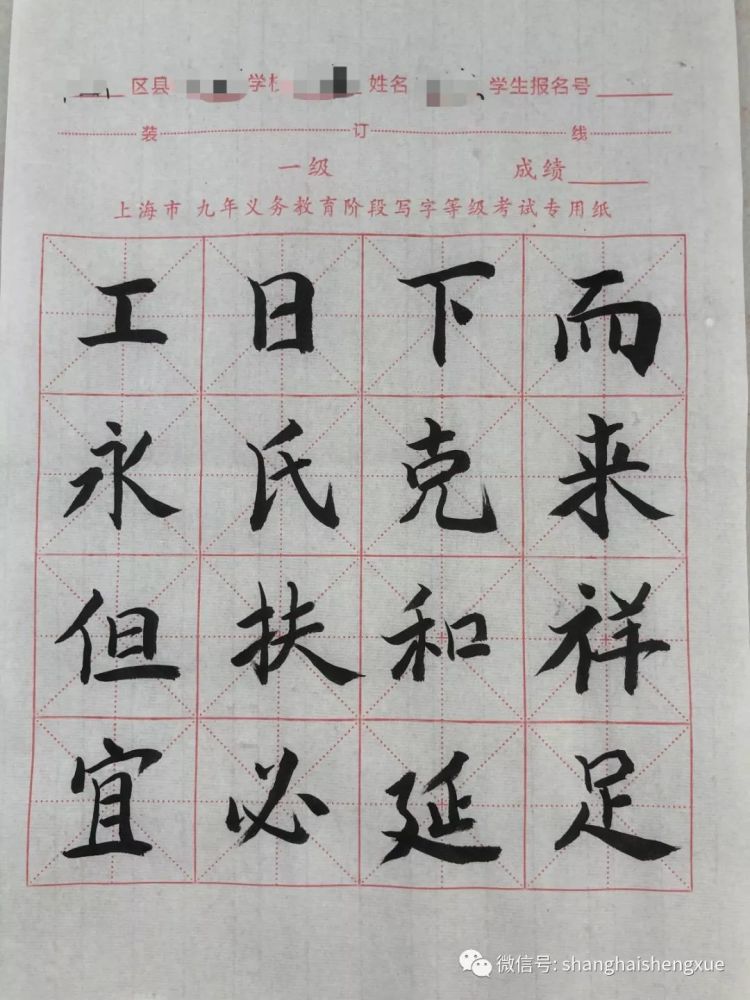 区县 学校 姓名 学生报名号
装 订 线
一级 成绩
上海市 九年义务教育阶段写字等级考试专用纸
工日下而
永氏克来
但扶和祥
宜必延足
微信号: shanghaishengxue